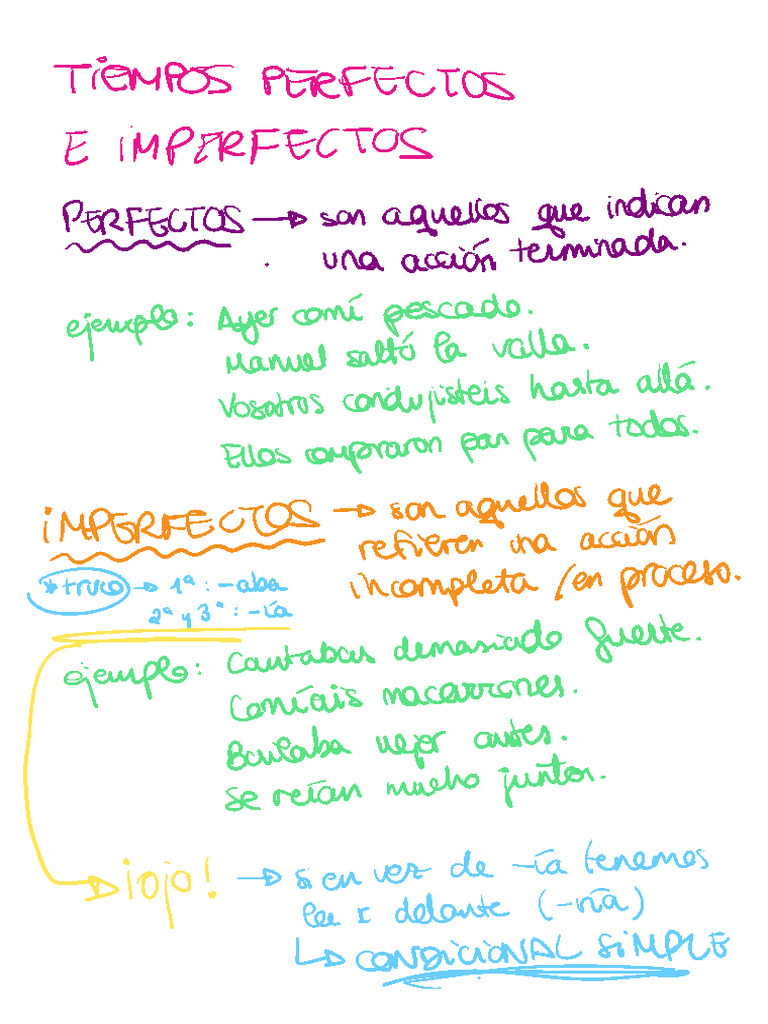 TIEMPOS PERFECTOS
E IMPERFECTOS
PERFECTOS → son aquellos que indican
una acción terminada.
ejemplo: Ayer comí pescado.
Manuel saltó la valla.
Vosotros condujisteis hasta allá.
Ellos compraron pan para todos.
IMPERFECTOS → son aquellos que
refieren una acción
incompleta / en proceso.
*truco → 1ª: -aba
2ª y 3ª: -ía
ejemplo: Cantabas demasiado fuerte.
Comíais macarrones.
Bailaba mejor antes.
Se reían mucho juntos.
¡ojo! → si en vez de -ía tenemos
la r delante (-ría)
↳ CONDICIONAL SIMPLE